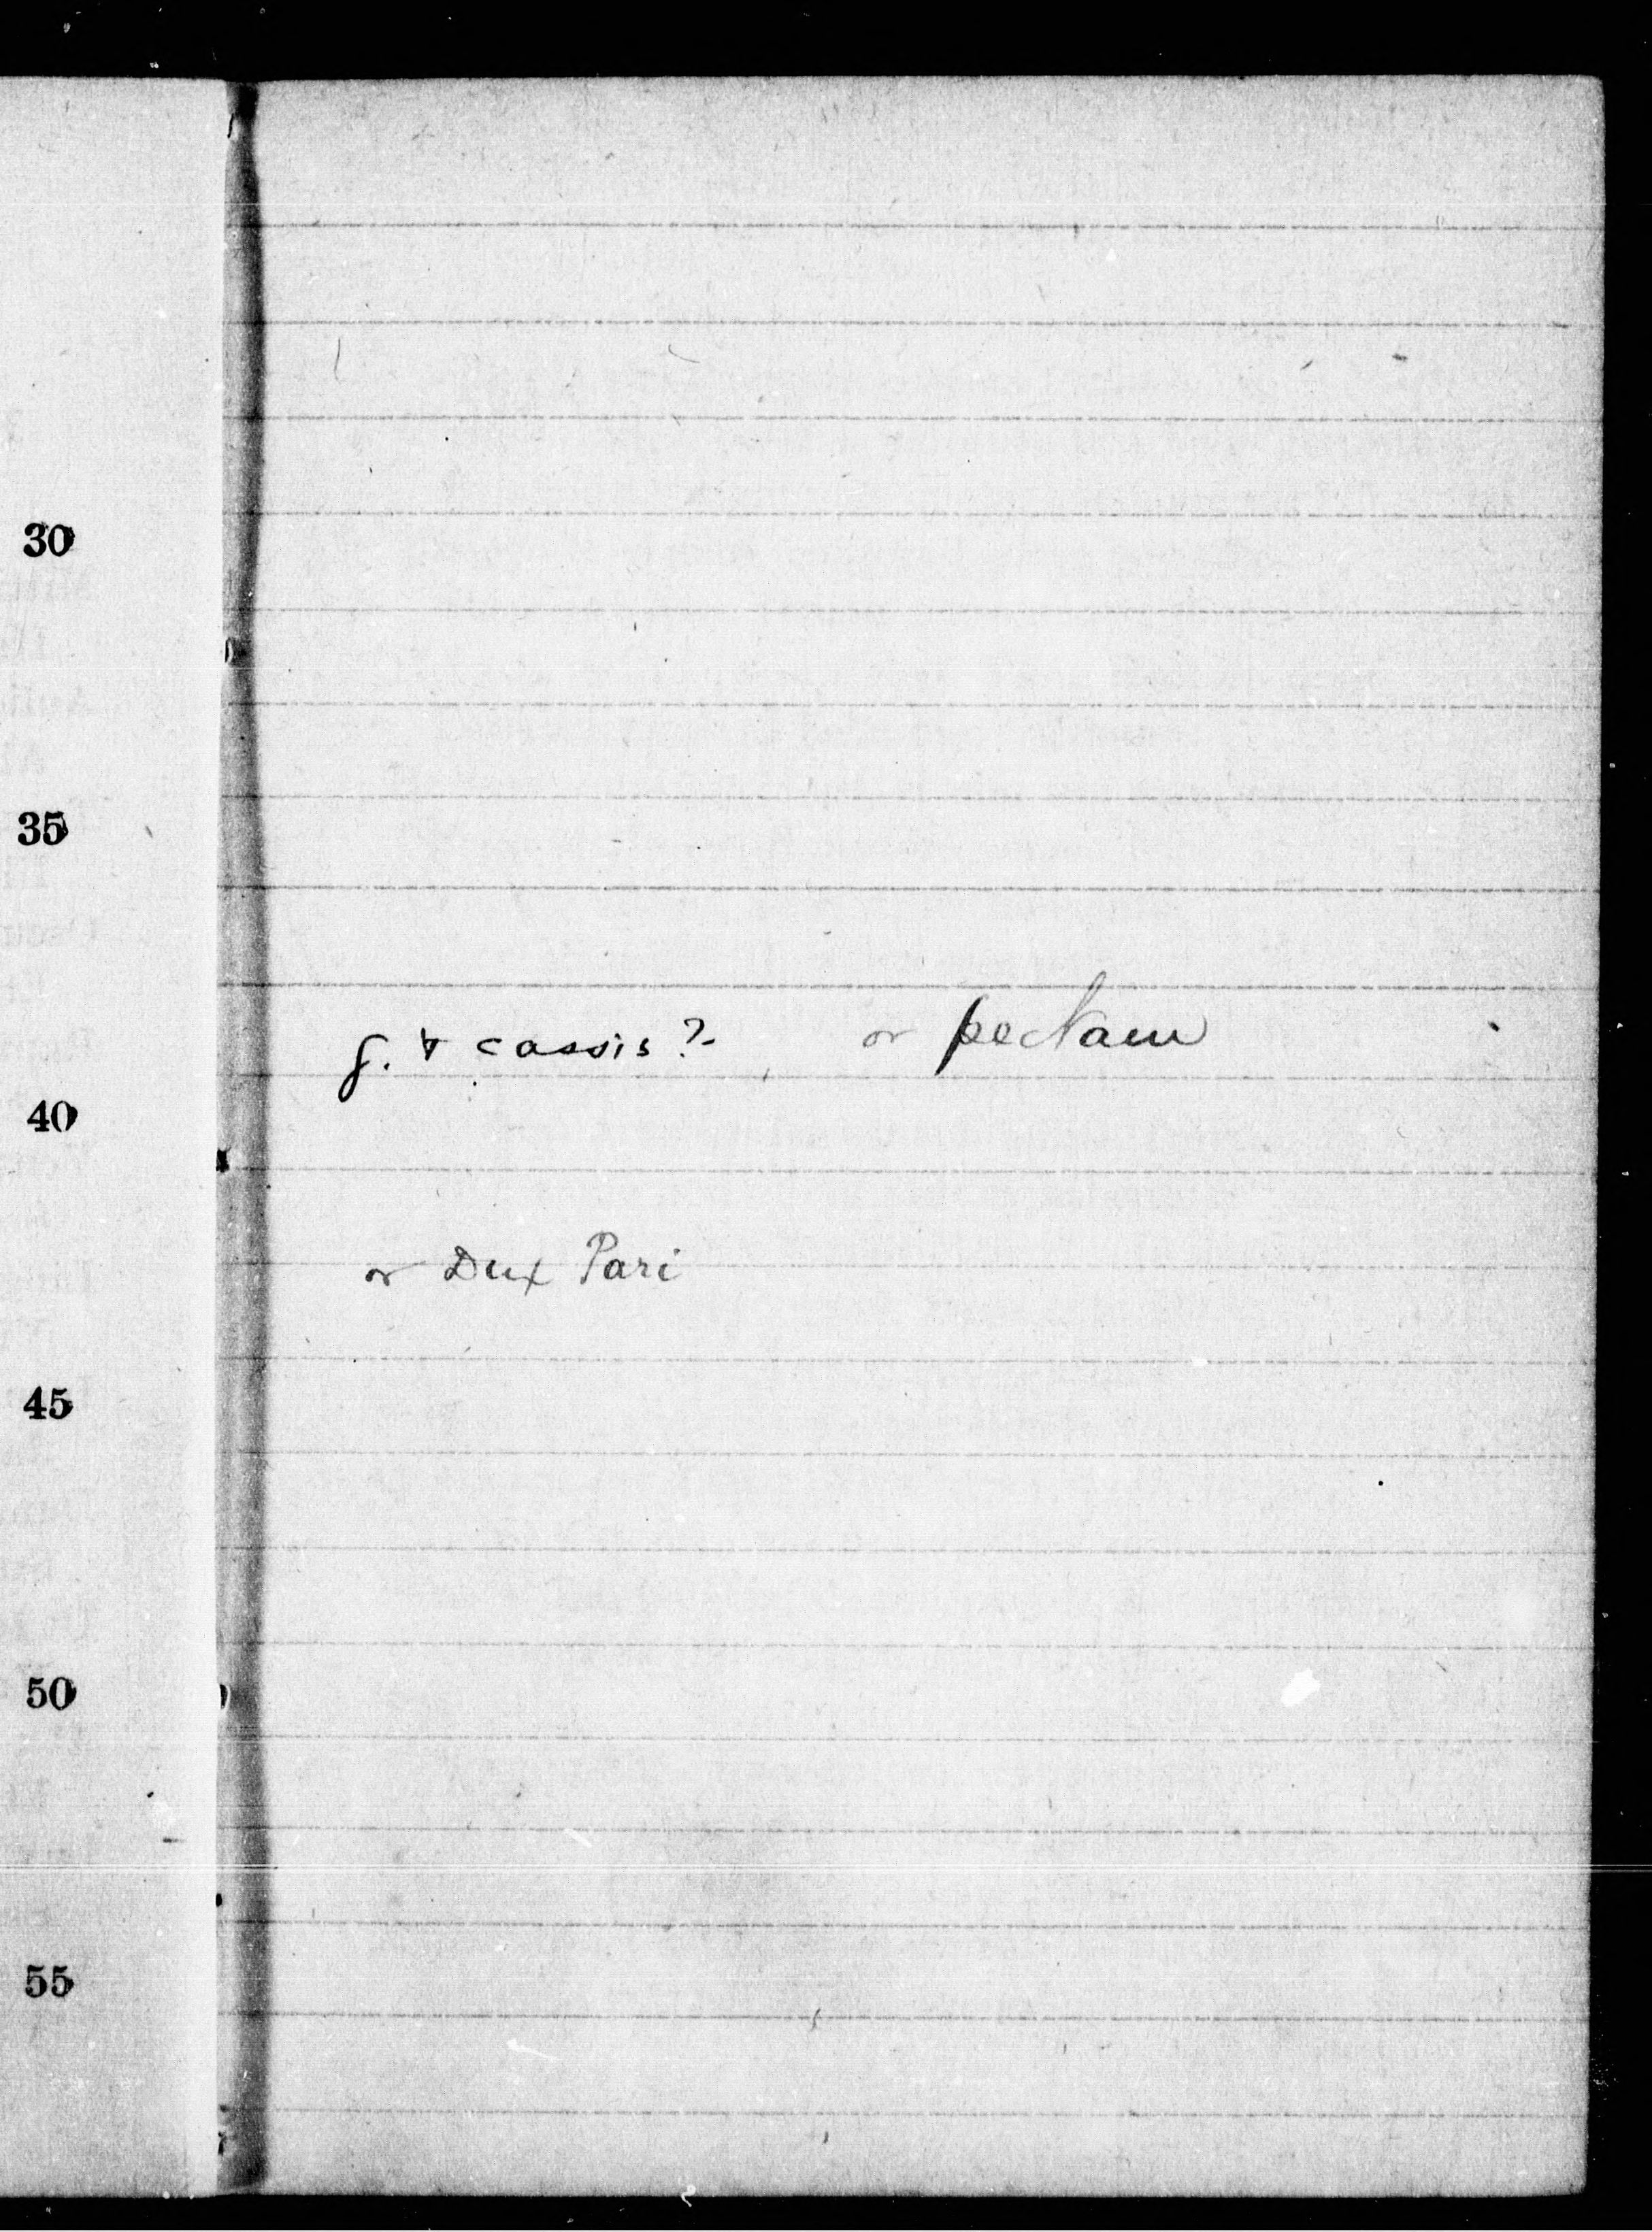 30
35
g. & cassis? or pectam
40
or Dux Pari
45
50
55